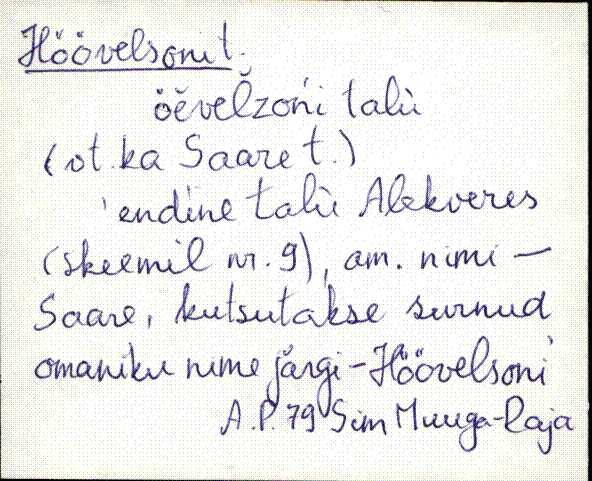 Höövelsoni t.
öěvelzońi talù
(vt. ka Saare t.)
'endine talù Alekveres
(skeemil nr. 9), am. nimi –
Saare, kutsutakse surnud
omaniku nime järgi – Höövelsoni
A.P. 79 Sim Muuga-Raja